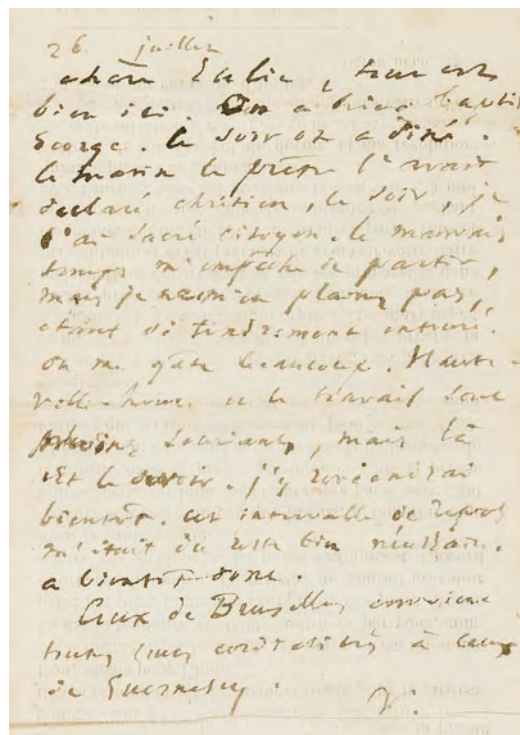 26 juillet
chère Julie, tout est
bien ici. On a hier baptisé
George. le soir on a dîné.
le matin le prêtre l'avait
déclaré chrétien, le soir, je
l'ai sacré citoyen. le mauvais
temps m'empêche de partir,
mais je ne m'en plains pas,
étant si tendrement entouré.
on me gâte beaucoup. Haute-
ville-house et le travail sont
moins souriants, mais là
est le devoir. j'y reviendrai
bientôt. cet intervalle de repos
m'était du reste bien nécessaire.
à bientôt donc.
Ceux de Bruxelles envoient
toutes leurs cordialités à ceux
de Guernesey.
V.